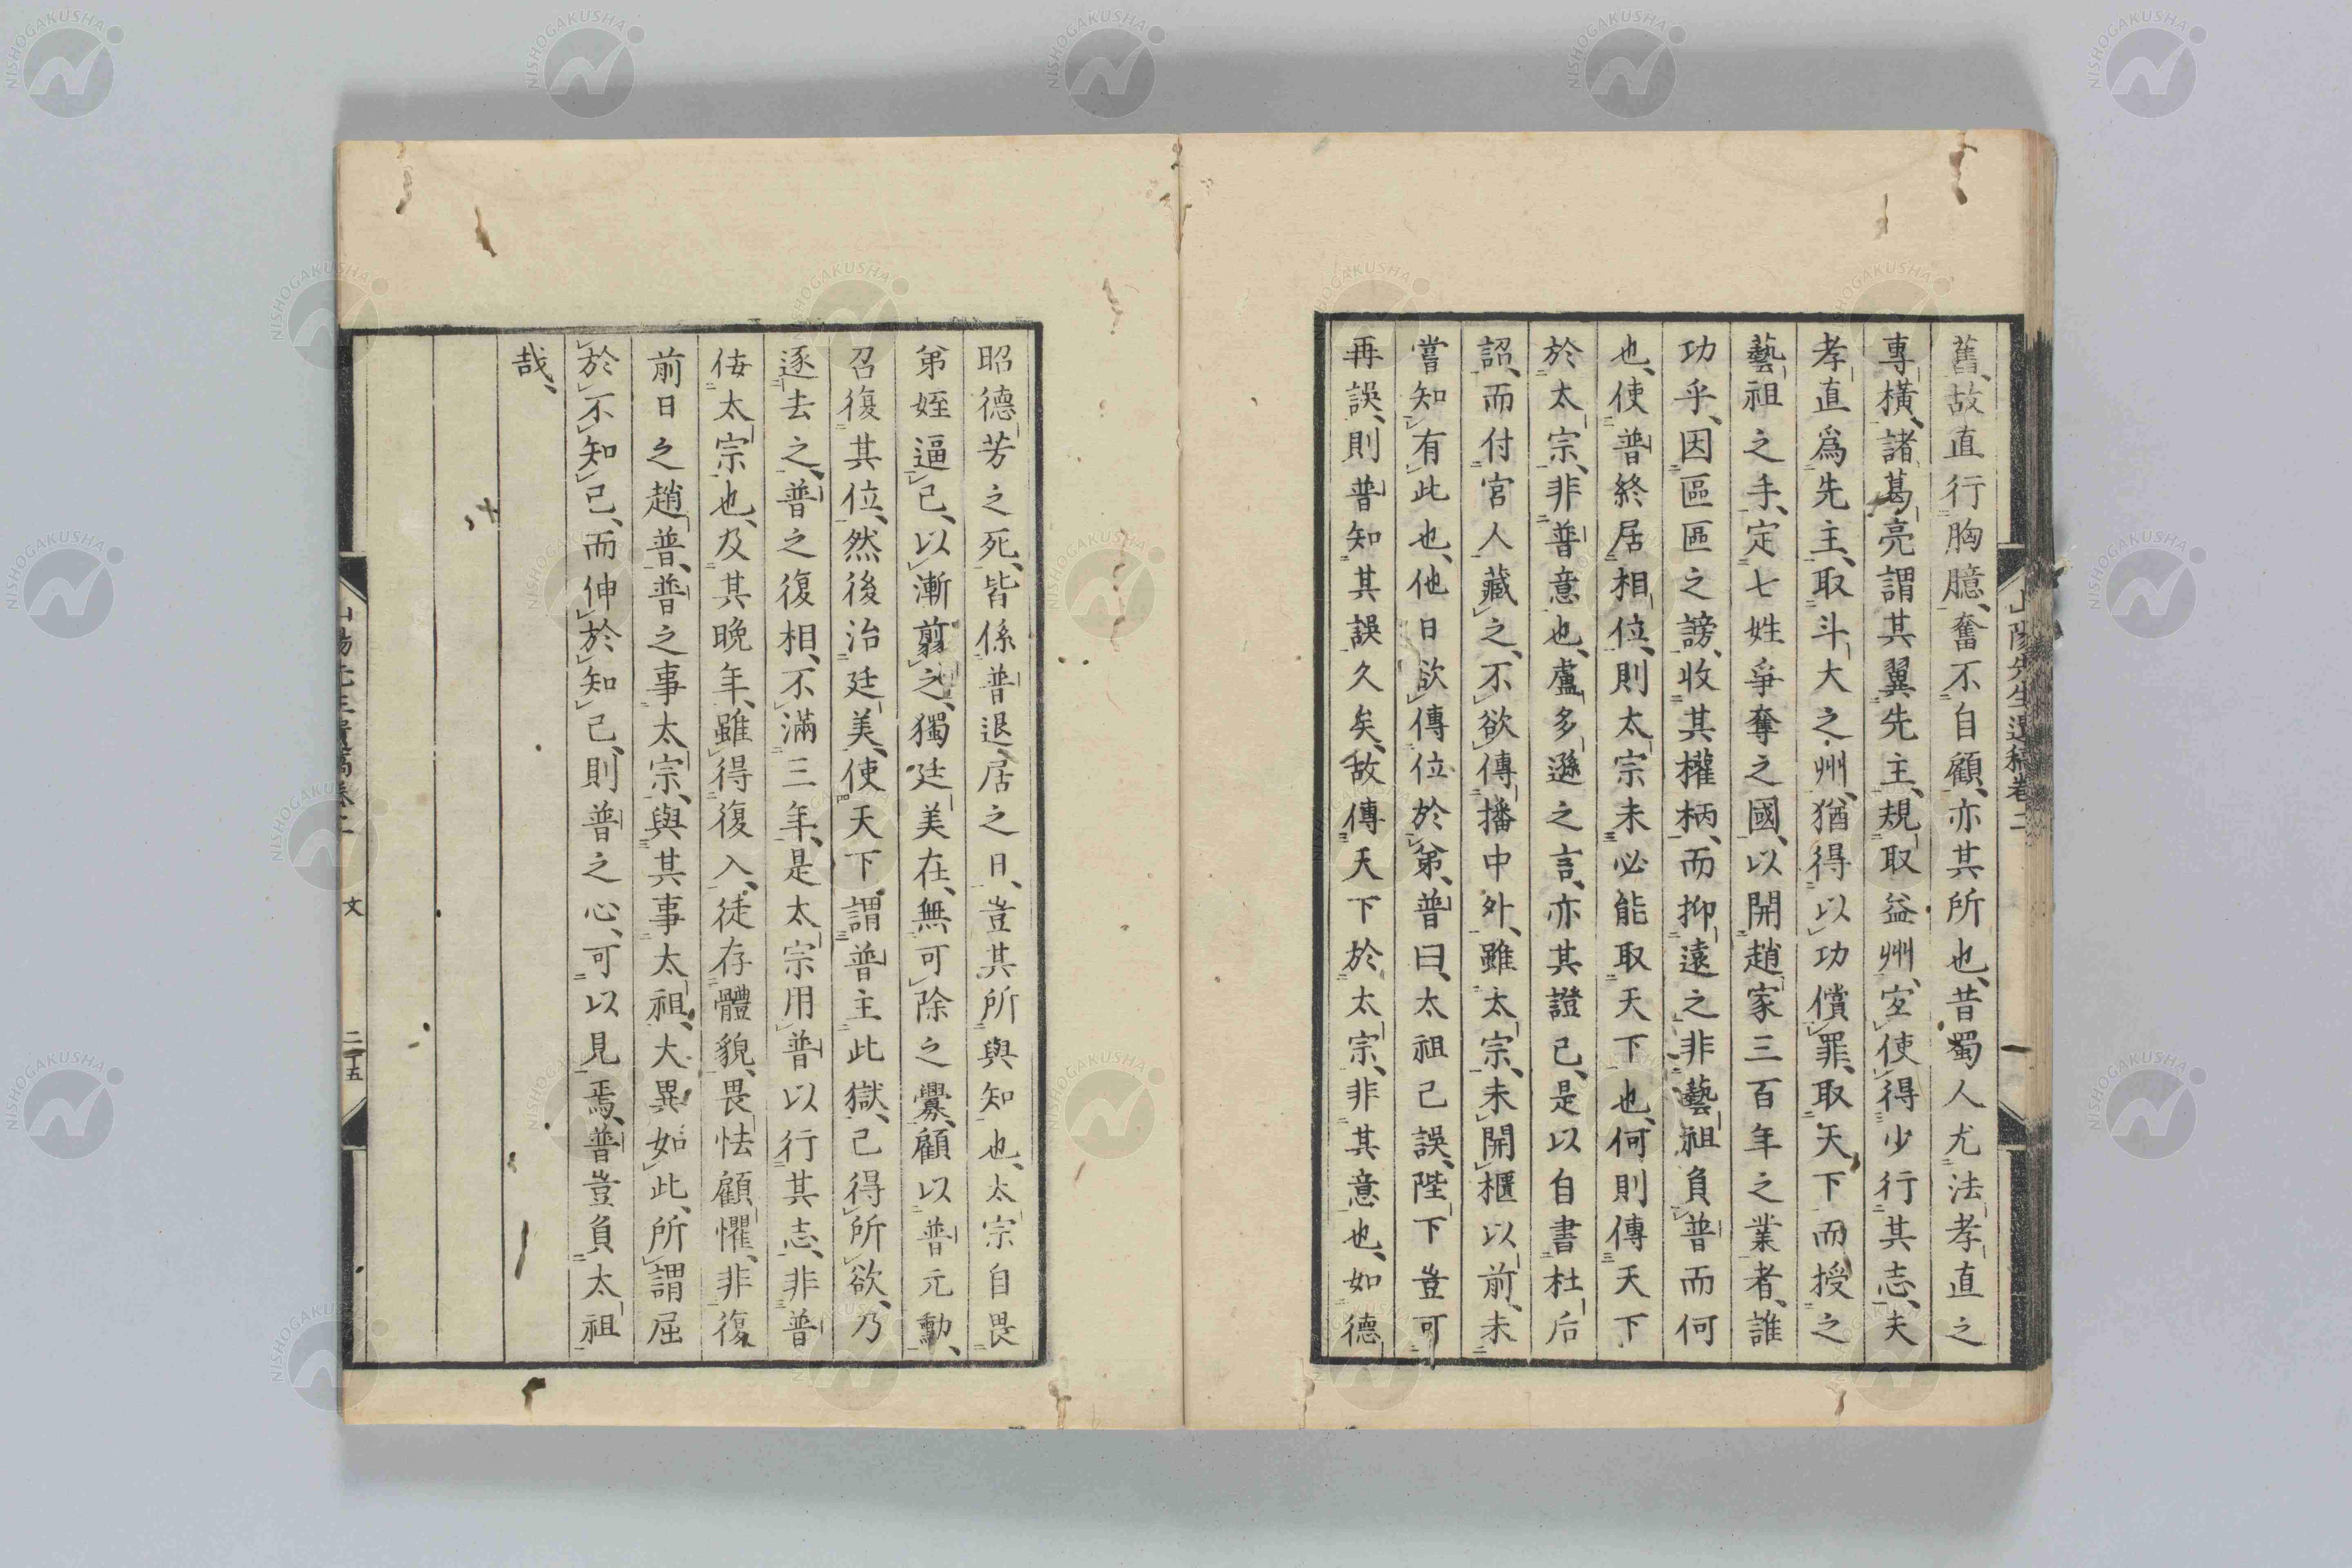 舊、故直行胸臆、奮不自顧、亦其所也、昔蜀人尤法孝直之
專橫、諸葛亮謂其翼先主、規取益州、宜使得少行其志、夫
孝直爲先主、取斗大之州、猶得以功償罪、取天下而授之
藝祖之手、定七姓爭奪之國、以開趙家三百年之業者、誰
功乎、因區區之謗、收其權柄、而抑遠之、非藝祖負普而何
也、使普終居相位、則太宗未必能取天下也、何則傳天下
於太宗、非普意也、盧多遜之言、亦其證已、是以自書杜后
詔、而付宮人藏之、不欲傳播中外、雖太宗、未開櫃以前、未
嘗知有此也、他日欲傳位於弟、普曰、太祖已誤、陛下豈可
再誤、則普知其誤久矣、故傳天下於太宗、非其意也、如德
昭德芳之死、皆係普退居之日、豈其所與知也、太宗自畏
弟姪逼己、以漸翦之、獨廷美在、無可除之釁、顧以普元勳、
召復其位、然後治廷美、使天下謂普主此獄、已得所欲、乃
逐去之、普之復相、不滿三年、是太宗用普以行其志、非普
侮太宗也、及其晚年、雖得復入、徒存體貌、畏怯顧懼、非復
前日之趙普、普之事太宗、與其事太祖、大異如此、所謂屈
於不知己、而伸於知己、則普之心、可以見焉、普豈負太祖
哉、
山陽先生遺稿卷二
文
二十五
NISHOGAKUSHA